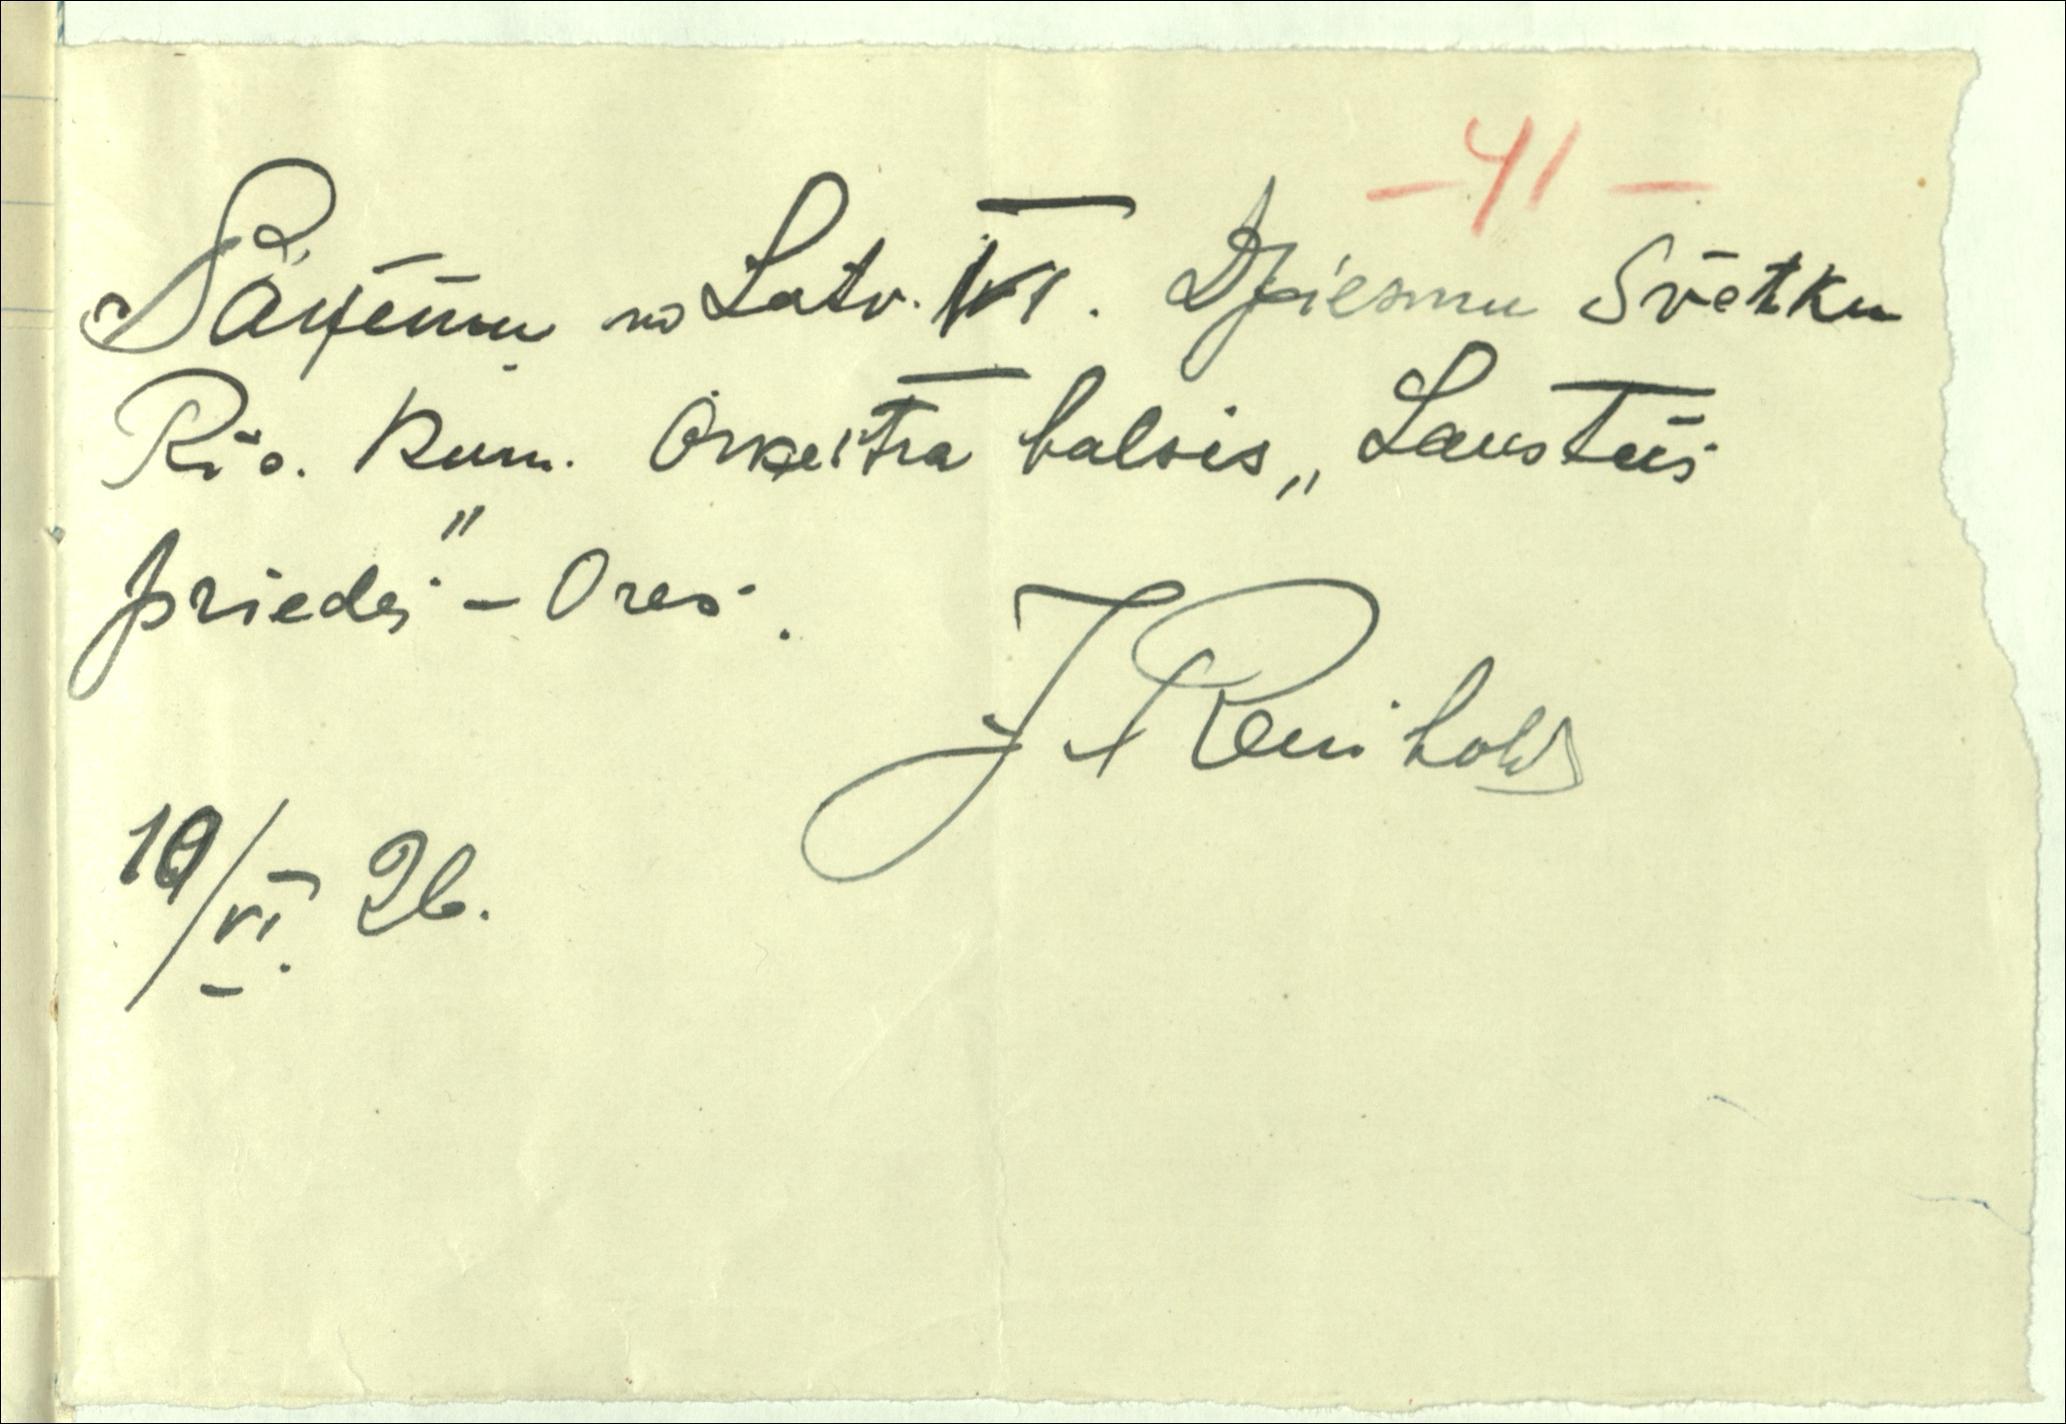 – 41 –
Saņēmu no Latv. VI. Dziesmu Svētku
Rīc. Kom. Orķestra balsis „Lauztās
priedes" – Ores.
J. Reinholds
19/VI. 26.